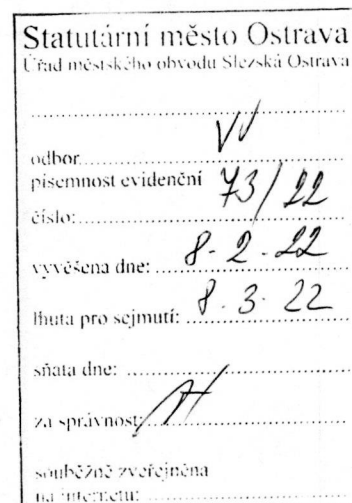 Statutární město Ostrava
Úřad městského obvodu Slezská Ostrava
odbor
písemnost evidenční
číslo: 73/22
vyvěšena dne: 8-2-22
lhůta pro sejmutí: 8.3.22
sňata dne:
za správnost:
souběžně zveřejněna
na internetu: